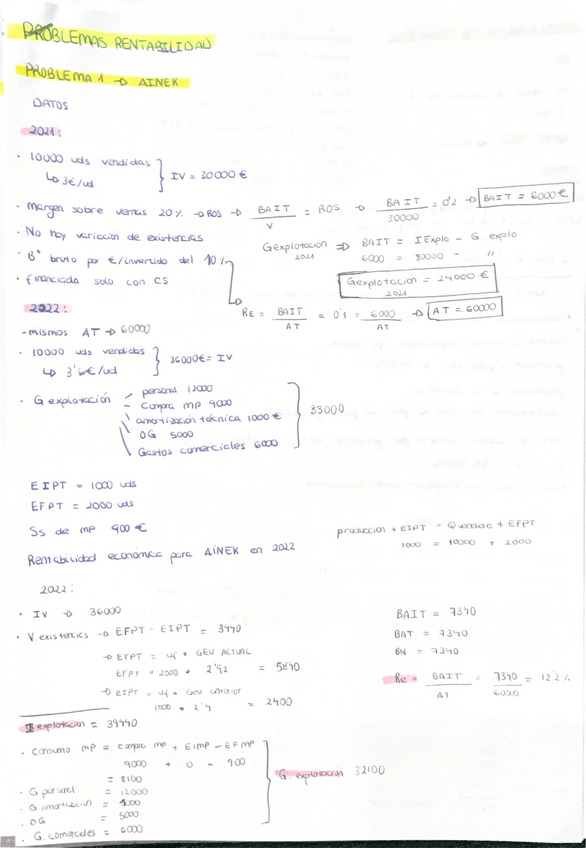 PROBLEMAS RENTABILIDAD
PROBLEMA 1 → AINEK
DATOS
2021:
· 10000 uds vendidas
↳ 3€/ud
} IV = 30000 €
· Margen sobre ventas 20% → ROS → BAIT / V = ROS → BAIT / 30000 = 0'2 → BAIT = 6000€
· No hay variacion de existencias
Gexplotacion 2021 ⇒ BAIT = IExplo - G. explo
6000 = 30000 - "
· Bº bruto por €/invertido del 10%
· financiada solo con CS
Gexplotación 2021 = 24000 €
RE = BAIT / AT = 0'1 = 6000 / AT → AT = 60000
2022:
- mismos AT → 60000
· 10000 uds vendidas
↳ 3'6€/ud
} 36000€ = IV
· G explotación
personal 12000
compra mp 9000
amortización técnica 1000€
OG 5000
Gastos comerciales 6000
} 33000
EIPT = 1000 uds
EFPT = 2000 uds
Ss de mp 900 €
Rentabilidad económica para AINEK en 2022
produccion + EIPT = Qvendida + EFPT
1000 = 10000 + 2000
2022:
· IV → 36000
· V existencias → EFPT - EIPT = 3440
→ EFPT = uf * GEU ACTUAL
EFPT = 2000 * 2'92 = 5840
→ EIPT = uf * GEU anterior
1000 * 2'4 = 2400
I explotacion = 39440
BAIT = 7340
BAT = 7340
BN = 7340
Re = BAIT / AT = 7340 / 60000 = 12'2%
· Consumo mp = compra mp + EIMP - EF mp
9000 + 0 - 900
= 8100
· G personal = 12000
· G amortización = 1000
· OG = 5000
· G. comerciales = 6000
} G. explotación 32100